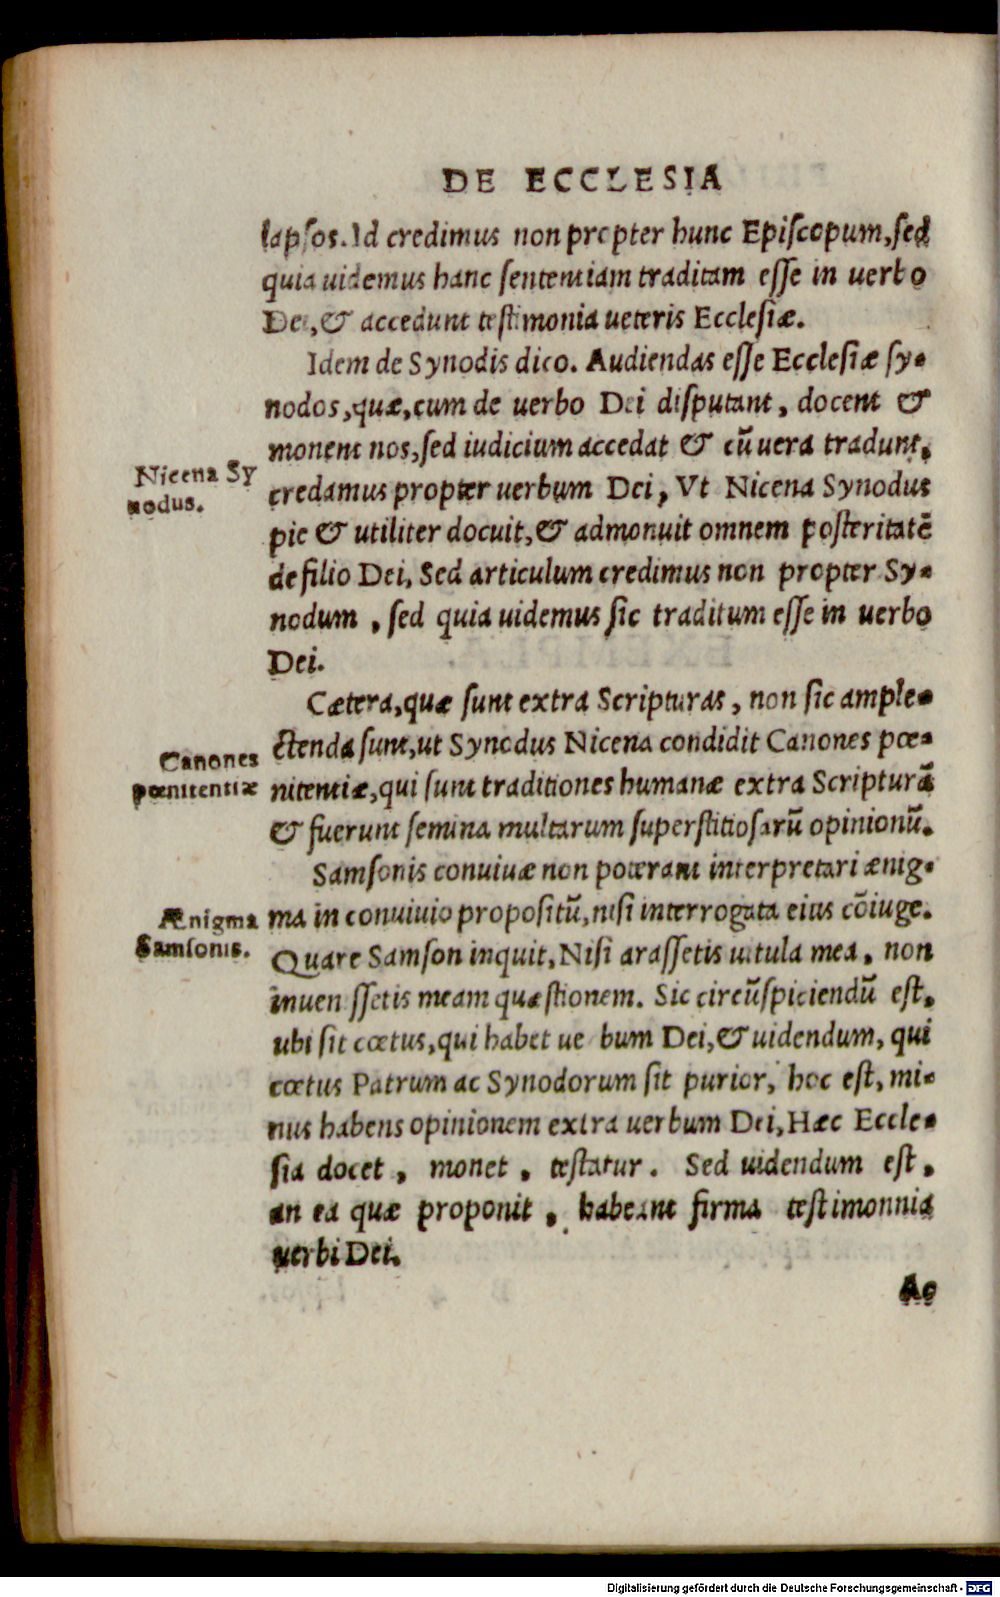 DE ECCLESIA
lapsos. Id credimus non propter hunc Episcopum, sed
quia uidemus hanc sententiam traditam esse in uerbo
Dei, & accedunt testimonia ueteris Ecclesiæ.
Idem de Synodis dico. Audiendas esse Ecclesiæ sy-
nodos, quæ, cum de uerbo Dei disputant, docent &
monent nos, sed iudicium accedat & cū uera tradunt,
Nicena Sy
nodus.
credamus propter uerbum Dei, Vt Nicena Synodus
pie & utiliter docuit, & admonuit omnem posteritatē
de filio Dei, Sed articulum credimus non propter Sy-
nodum, sed quia uidemus sic traditum esse in uerbo
Dei.
Cætera, quæ sunt extra Scripturas, non sicample-
Canones
pœnitentiæ
ctenda sunt, ut Synodus Nicena condidit Canones pœ-
nitentiæ, qui sunt traditiones humanæ extra Scripturā
& fuerunt semina multarum superstitiosarū opinionū.
Samsonis conuiuæ non poterant interpretari ænig-
Ænigma
Samsonis.
ma in conuiuio propositū, nisi interrogata eius cōiuge.
Quare Samson inquit, Nisi arassetis uitula mea, non
inuen ssetis meam quæstionem. Sic circūspiciendū est,
ubi sit cœtus, qui habet ue bum Dei, & uidendum, qui
cœtus Patrum ac Synodorum sit purior, hoc est, mi-
nus habens opinionem extra uerbum Dei, Hæc Eccle-
sia docet, monet, testatur. Sed uidendum est,
an ea quæ proponit, habeant firma testimonnia
uerbi Dei.
Ac
Digitalisierung gefördert durch die Deutsche Forschungsgemeinschaft - DFG